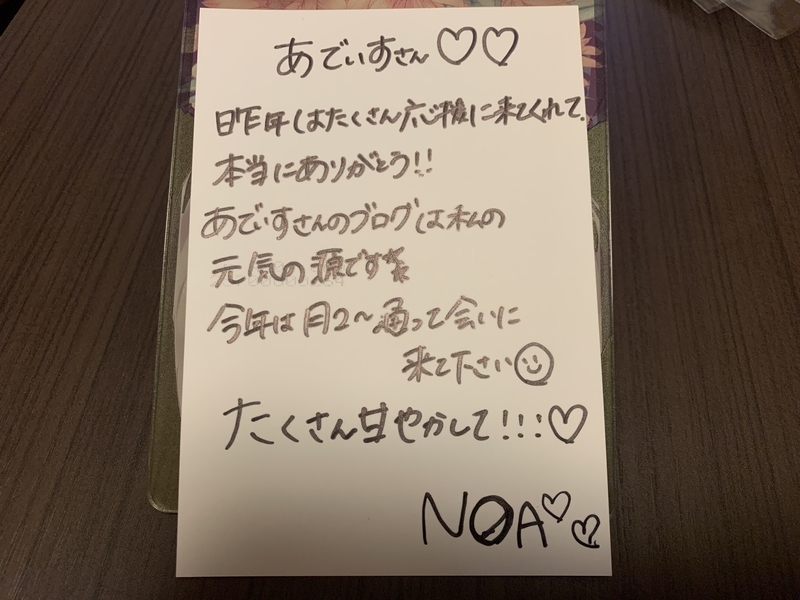 あでぃすさん♡♡
昨年はたくさん応援に来てくれて、
本当にありがとう!!
あでぃすさんのブログは私の
元気の源です
今年は月2〜通って会いに
来て下さい
たくさん甘やかして!!!♡
NOA♡♡